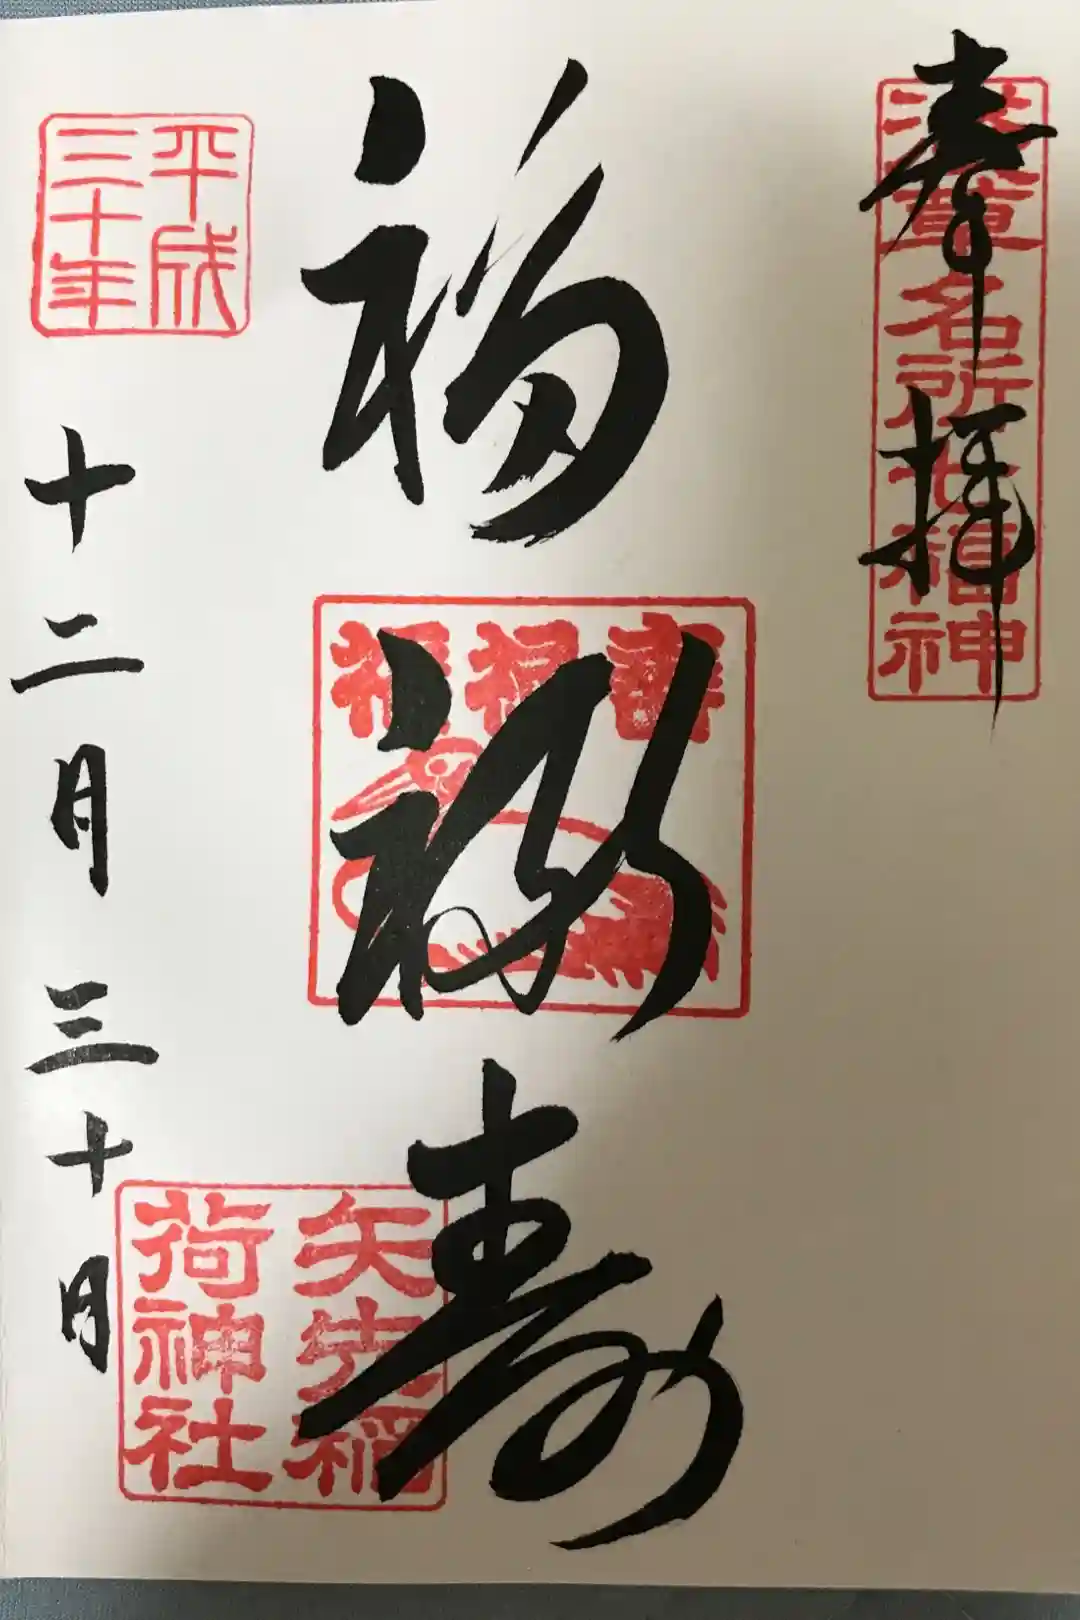 奉拝
浅草名所七福神
福禄寿
福禄寿
矢先稲
荷神社
平成
三十年
十二月三十日